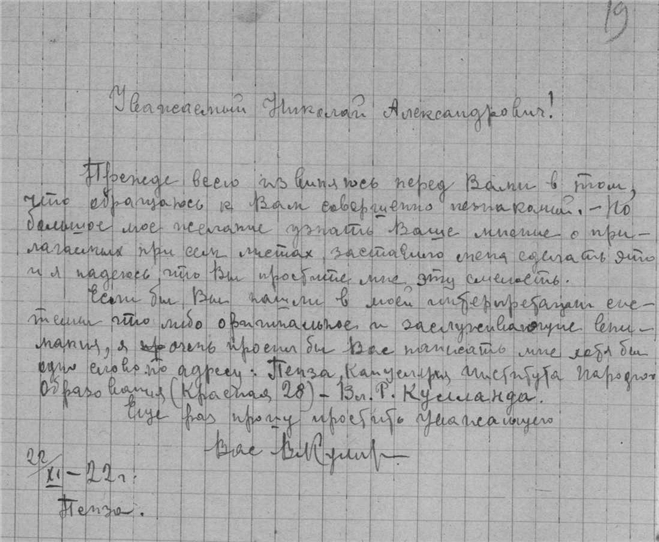 19
Уважаемый Николай Александрович!
Прежде всего извиняюсь перед Вами в том,
что обращаюсь к Вам совершенно незнакомый. – Но
большое мое желание узнать Ваше мнение о при-
лагаемых при сем листах заставило меня сделать это
и я надеюсь, что Вы простите мне эту смелость.
Если бы Вы нашли в моей интерпретации сис-
темы что либо оригинальное и заслуживающие вни-
мания, я очень просил бы Вас написать мне хотя бы
одно слово по адресу: Пенза, Канцелярия Института Народного
Образования (Красная 28) – Вл. Р.
Еще раз прошу простить уважающего
Вас
22/XI – 22 г.
Пенза.